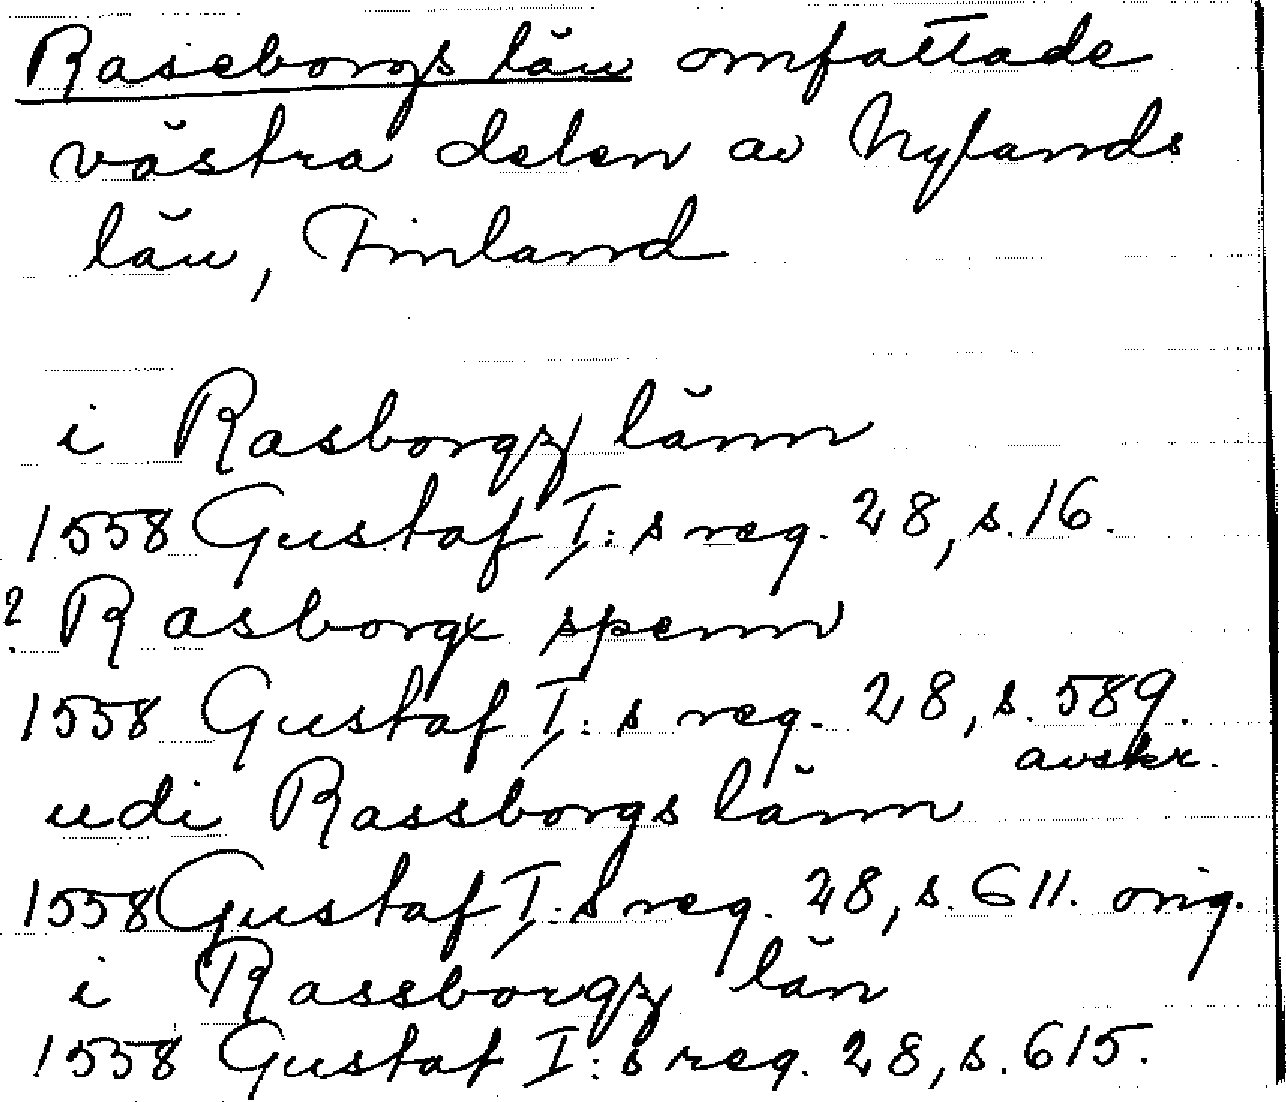 Raseborgs län omfattade
västra delen av Nylands
län, Finland
i Rasborgz länn
1558 Gustaf I:s reg. 28, s. 16.
? Rasborgx spenn
1558 Gustaf I:s reg. 28, s. 589.
avskr.
udi Rassborgs länn
1558 Gustaf I:s reg. 28, s. 611. orig.
i Rassborgz län
1558 Gustaf I:s reg. 28, s. 615.